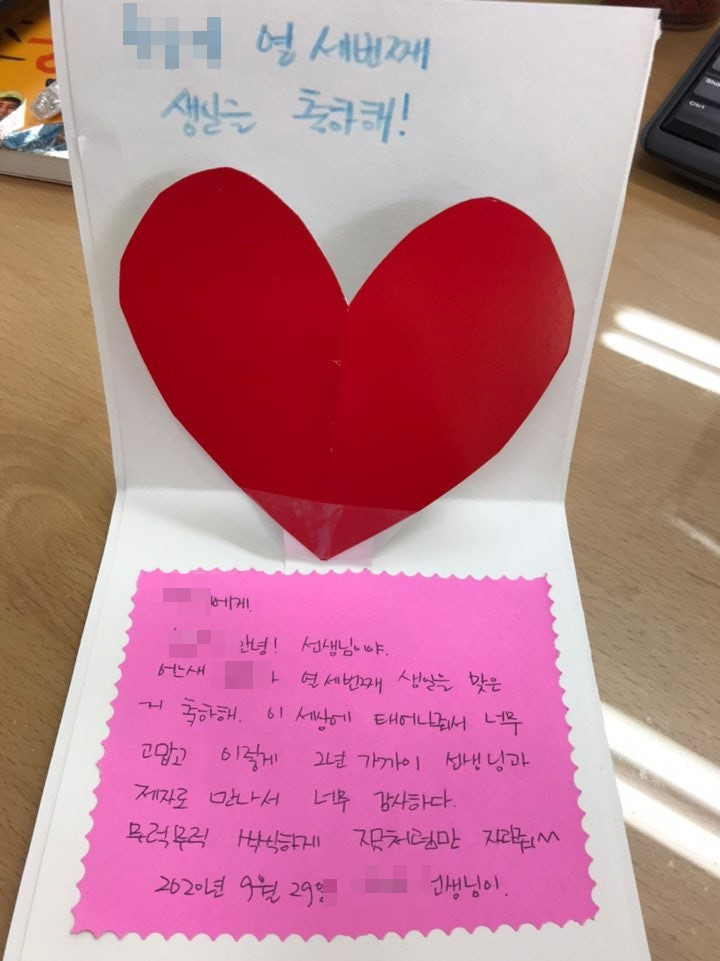 열 세번째
생일을 축하해!
에게.
안녕! 선생님이야.
어느새 열세번째 생일을 맞은
거 축하해. 이 세상에 태어나줘서 너무
고맙고 이렇게 2년 가까이 선생님과
제자로 만나서 너무 감사하다.
무럭무럭 씩씩하게 지금처럼만 자라줘~
2020년 9월 29일 선생님이.
Ctrl